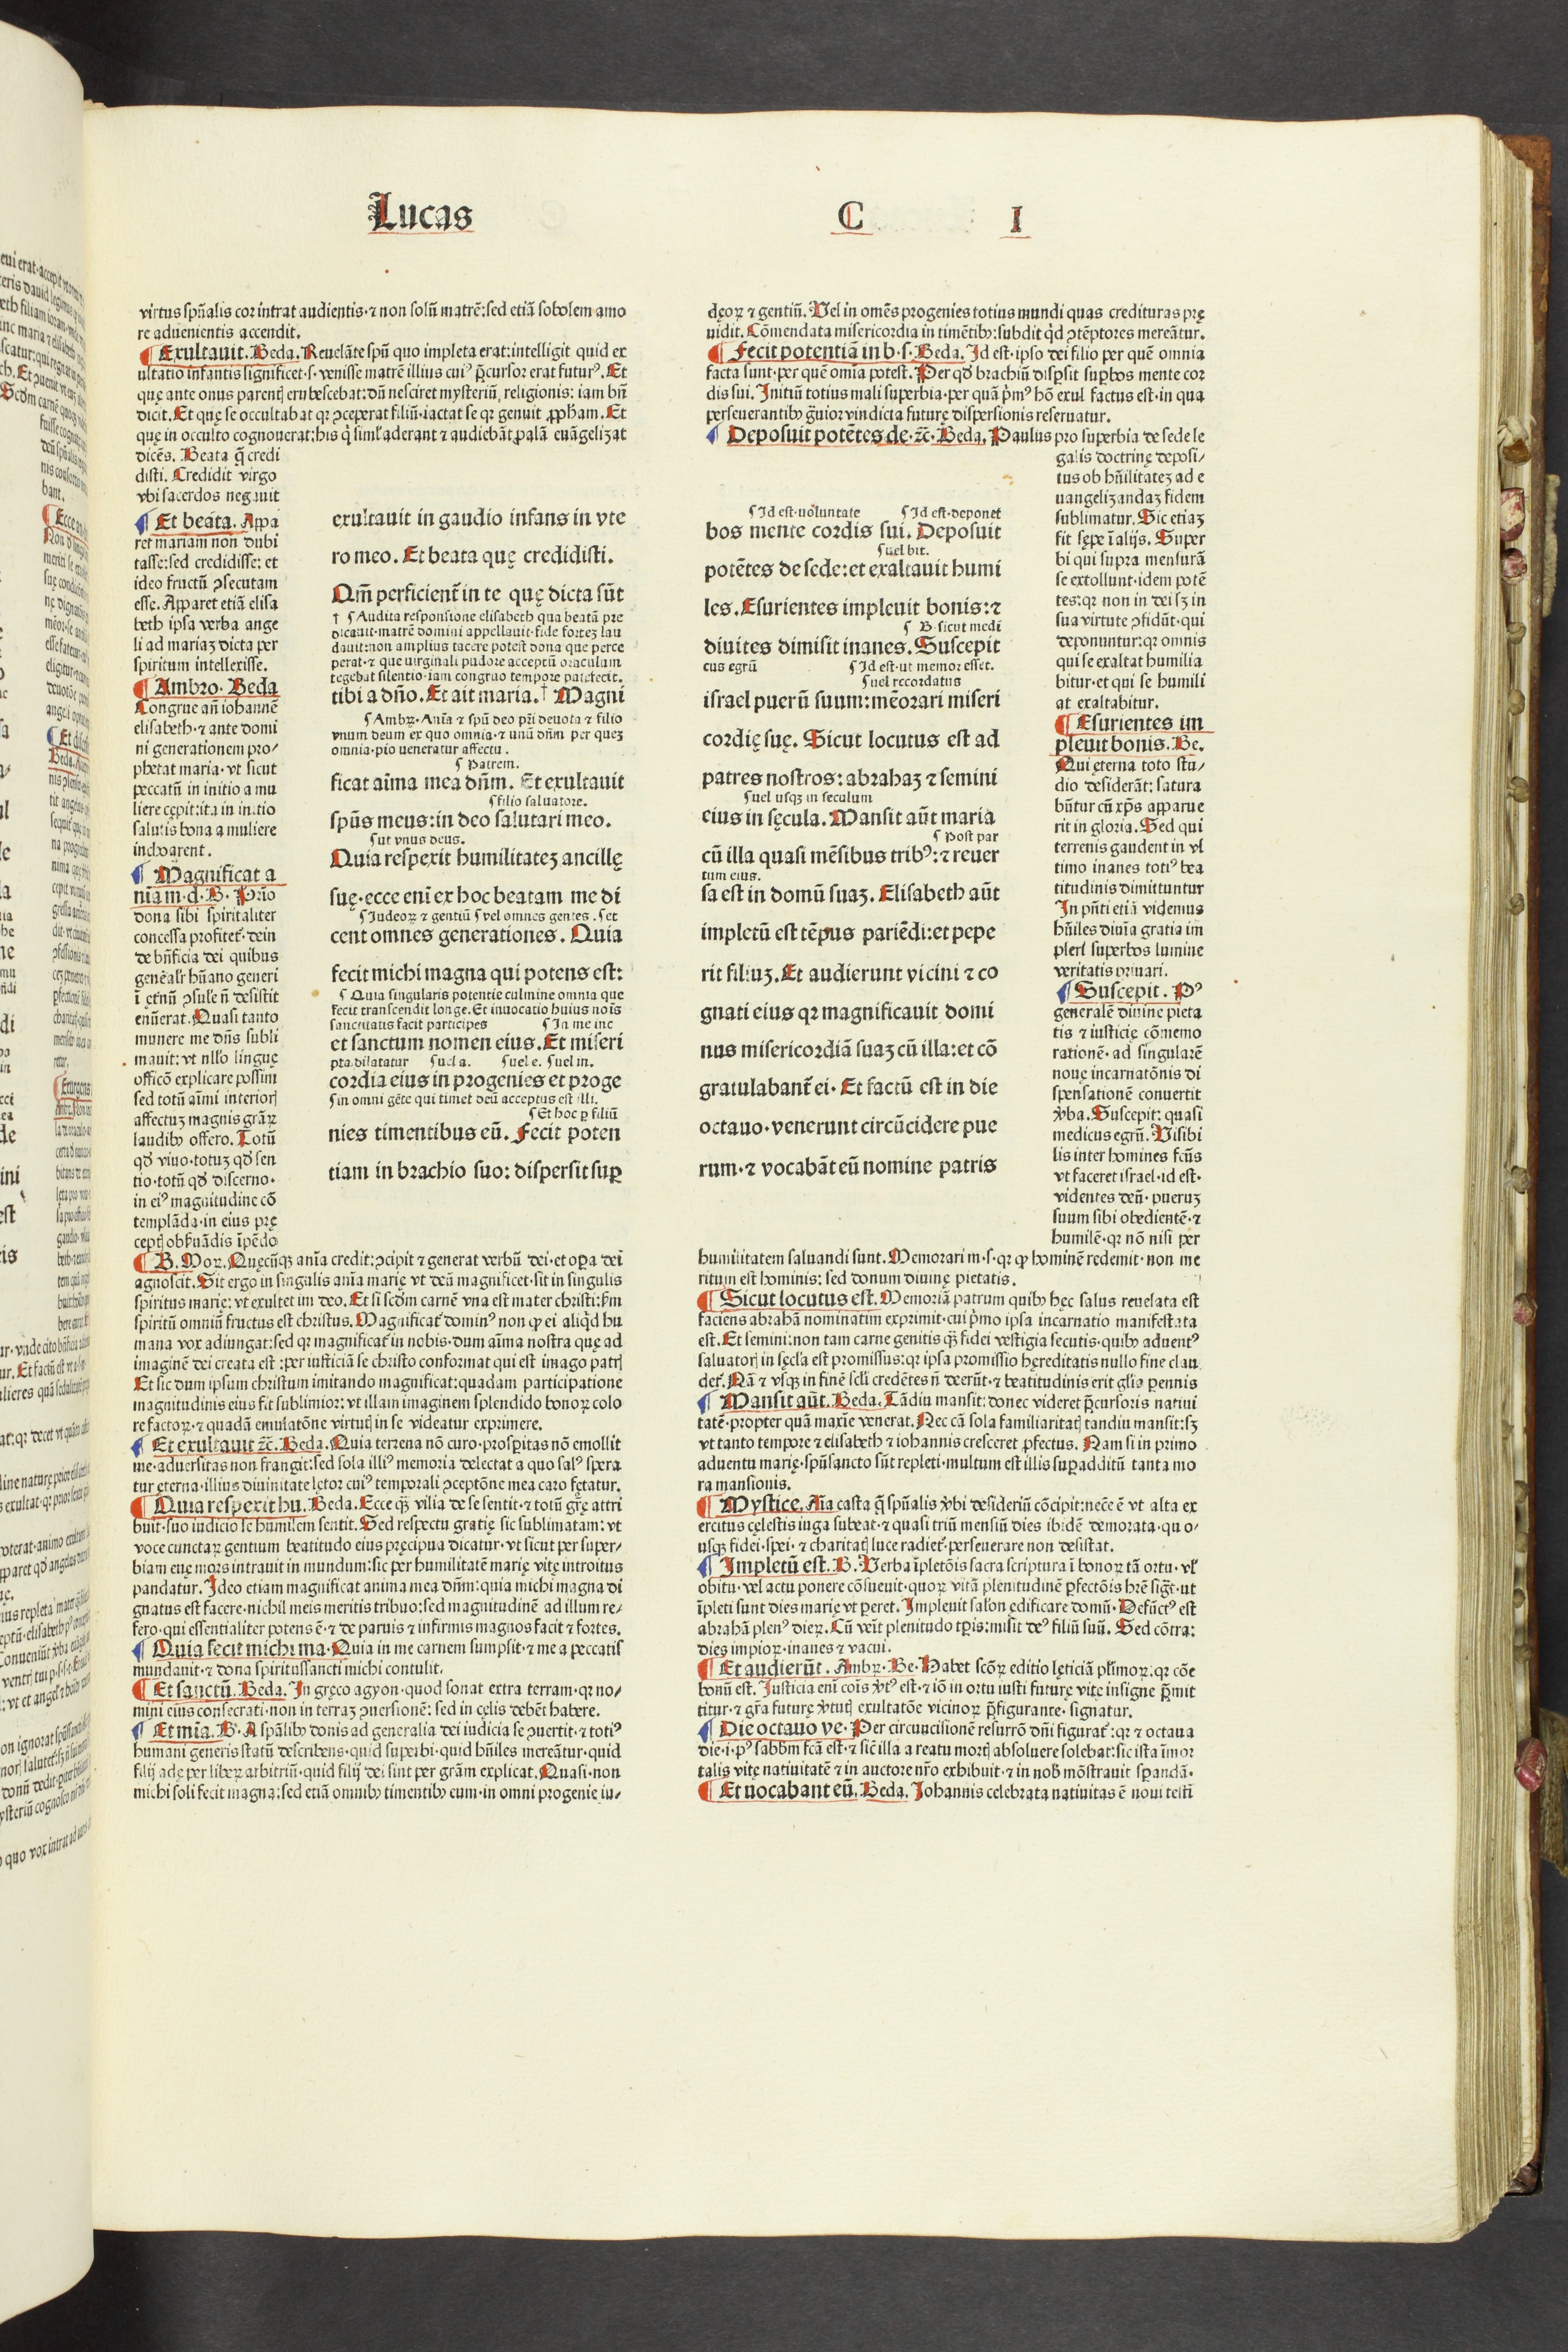 Lucas
C I
virtus spũalis cor intrat audientis·⁊ non solũ matrẽ:sed etiã sobolem amo
re aduenientis accendit.
¶ Exultauit. Beda. Reuelãte spũ quo impleta erat:intelligit quid ex
ultatio infantis significet·s·venisse matrẽ illius cuiꝰ p̃cursor erat futurꝰ. Et
quę ante onus parentꝭ erubescebat:dũ nesciret mysteriũ religionis: iam bñ
dicit. Et quę se occultabat qꝛ ꝯceperat filiũ·iactat se qꝛ genuit ꝓpham. Et
quę in occulto cognouerat:his q̇ siml' aderant ⁊ audiebãt palã euãgelizat
dicẽs. Beata q̃ credi
disti. Credidit virgo
vbi sacerdos negauit
¶ Et beata. Appa
ret mariam non dubi
tasse:sed credidisse: et
ideo fructũ ꝯsecutam
esse. Apparet etiã elisa
beth ipsa verba ange
li ad mariaʒ dicta per
spiritum intellexisse.
¶ Ambro· Beda
Congrue añ iohannẽ
elisabeth·⁊ ante domi
ni generationem pro-
phetat maria·vt sicut
peccatũ in initio a mu
liere cępit:ita in initio
salutis bona a muliere
inchoarent.
¶ Magnificat a
nĩa m·d·B· Primo
dona sibi spiritaliter
concessa profitet᷑·dein
de bñficia dei quibus
genẽalr̃ hũano generi
ĩ ętnũ ꝯsule᷑ ñ desistit
enũerat. Quasi tanto
munere me dñs subli
mauit: vt nll'o linguę
officõ explicare possim
sed totũ aĩmi interiorꝭ
affectuʒ magnis grãꝝ
laudibꝫ offero. Totũ
qđ viuo·totuʒ qđ sen
tio·totũ qđ discerno·
in eiꝰ magnitudine cõ
templãda·in eius prę
ceptꝭ obẜuãdis ĩpẽdo
exultauit in gaudio infans in vte
ro meo. Et beata quę credidisti.
Qm̃ perficient᷑ in te quę dicta sũt
† ¶ Audita responsione elisabeth qua beatã pre
dicauit·matrẽ domini appellauit·fide forteʒ lau
dauit:non amplius tacere potest dona que perce
perat·⁊ que uirginali pudore acceptũ oraculum
tegebat silentio·iam congruo tempore patefecit.
tibi a dño. Et ait maria. † Magni
¶ Ambꝛ· Anĩa ⁊ spũ deo pr̃i deuota ⁊ filio
vnum deum ex quo omnia·⁊ unũ dñm per queʒ
omnia·pio ueneratur affectu.
¶ Patrem.
ficat aĩma mea dñm. Et exultauit
¶ filio saluatore.
spũs meus:in deo salutari meo.
¶ ut vnus deus.
Quia respexit humilitateʒ ancillę
suę·ecce eni ex hoc beatam me di
¶ Judeoꝝ ⁊ gentiũ ¶ vel omnes gentes. ¶ et
cent omnes generationes. Quia
fecit michi magna qui potens est:
¶ Quia singularis potentie culmine omnia que
fecit transcendit longe. Et inuocatio huius noĩs
sanctitatis facit participes ¶ In me inc
et sanctum nomen eius. Et miseri
pta·dilatatur ¶ uel a. ¶ uel e. ¶ uel in.
cordia eius in progenies et proge
¶ in omni gẽte qui timet deũ acceptus est illi.
¶ Et hoc ꝑ filiũ
nies timentibus eũ. Fecit poten
tiam in brachio suo: dispersit suꝑ
¶ B. Moꝝ. Quęcũqꝫ anĩa credit:ꝯcipit ⁊ generat verbũ dei·et oꝑa dei
agnoscit. Sit ergo in singulis anĩa marię vt deũ magnificet·sit in singulis
spiritus marię: vt exultet im deo. Et si scđm carnẽ vna est mater christi:ẜm
spiritũ omniũ fructus est christus. Magnificat᷑ dominꝰ non ꝙ ei aliqđ hu
mana vox adiungat:sed qꝛ magnificat᷑ in nobis·dum aĩma nostra quę ad
imaginẽ dei creata est :per iusticiã se christo conformat qui est imago patrꝭ
Et sic dum ipsum christum imitando magnificat:quadam participatione
magnitudinis eius fit sublimior: vt illam imaginem splendido bonoꝝ colo
re factoꝝ·⁊ quadã emulatõne virtutꝭ in se videatur exprimere.
¶ Et exultauit ⁊c̃. Beda. Quia terrena nõ curo·prosꝑitas nõ emollit
me·aduersitas non frangit:sed sola illiꝰ memoria delectat a quo salꝰ spera
tur eterna·illius diuinitate lętor cuiꝰ temporali ꝯceptõne mea caro fętatur.
¶ Quia respexit hu. Beda. Ecce q̃ vilia de se sentit·⁊ totũ gr̃ę attri
buit·suo iudicio se humilem sentit. Sed respectu gratię sic sublimatam: vt
voce cunctaꝝ gentium beatitudo eius pręcipua dicatur·vt sicut per super-
biam euę mors intrauit in mundum:sic per humilitatẽ marię vitę introitus
pandatur. Ideo etiam magnificat anima mea dñm: quia michi magna di
gnatus est facere·nichil meis meritis tribuo:sed magnitudinẽ ad illum re-
fero·qui essentialiter potens ẽ·⁊ de paruis ⁊ infirmis magnos facit ⁊ fortes.
¶ Quia fecit michi ma· Quia in me carnem sumpsit·⁊ me a peccatis
mundauit·⁊ dona spiritussancti michi contulit.
¶ Et sanctũ. Beda. In gręco agyon·quod sonat extra terram·qꝛ no-
mini eius consecrati·non in terraʒ ꝯuersionẽ: sed in cęlis debẽt habere.
¶ Et mĩa. B. A spãlibꝫ donis ad generalia dei iudicia se ꝯuertit·⁊ totiꝰ
humani generis statũ describens·quid superbi·quid hũiles mereãtur·quid
filij adę per libeꝝ arbitriũ·quid filij dei sint per grãm explicat. Quasi·non
michi soli fecit magna:sed etiã omnibꝫ timentibꝫ eum·in omni progenie iu-
dęoꝝ ⁊ gentiũ. Vel in omẽs progenies totius mundi quas credituras prę
uidit. Cõmendata misericordia in timẽtibꝫ:subdit qđ ꝯtẽptores mereãtur.
¶ Fecit potentiã in b·s·Beda. Id est·ipso dei filio per quẽ omnia
facta sunt·per quẽ omĩa potest. Per qđ brachiũ disꝑsit suꝑbos mente cor
dis sui. Initiũ totius mali superbia·per quã p̃mꝰ hõ exul factus est·in qua
perseuerantibꝫ g̃uior vindicta futurę dispersionis reseruatur.
¶ Deposuit potẽtes de·⁊c̃·Beda. Paulus pro superbia de sede le
galis doctrinę deposi-
tus ob hũilitateʒ ad e
uangelizandaʒ fidem
sublimatur. Sic etiaʒ
fit sępe ĩ alijs. Super
bi qui supra mensurã
se extollunt·idem potẽ
tes:qꝛ non in dei sʒ in
sua virtute ꝯfidũt·qui
deponuntur:qꝛ omnis
qui se exaltat humilia
bitur·et qui se humili
at exaltabitur.
¶ Esurientes im
pleuit bonis. Be.
Qui ęterna toto stu-
dio desiderãt: satura
bũtur cũ xp̃s apparue
rit in gloria. Sed qui
terrenis gaudent in vl
timo inanes totiꝰ bea
titudinis dimittuntur
In pñti etiã videmus
hũiles diuĩa gratia im
pleri superbos lumine
veritatis priuari.
¶ Suscepit. Pꝰ
generalẽ diuine pieta
tis ⁊ iusticię cõmemo
rationẽ·ad singularẽ
nouę incarnatõnis di
spensationẽ conuertit
v̾ba. Suscepit: quasi
medicus egrũ. Visibi
lis inter homines fc̃us
vt faceret israel·id est·
videntes deũ·pueruʒ
suum sibi obedientẽ·⁊
humilẽ·qꝛ nõ nisi per
¶ Id est·uoluntate ¶ Id est·deponet
bos mente cordis sui. Deposuit
¶ uel bit.
potẽtes de sede:et exaltauit humi
les. Esurientes impleuit bonis:⁊
¶ B·sicut medi
diuites dimisit inanes. Suscepit
cus egrũ ¶ Id est·ut memor esset.
¶ uel recordatus
israel puerũ suum:mẽorari miseri
cordię suę. Sicut locutus est ad
patres nostros: abrahaʒ ⁊ semini
¶ uel usqꝫ in seculum
eius in sęcula. Mansit aũt maria
¶ Post par
cũ illa quasi mẽsibus tribꝰ:⁊ reuer
tum eius.
sa est in domũ suaʒ. Elisabeth aũt
impletũ est tẽpus pariẽdi:et pepe
rit filiuʒ. Et audierunt vicini ⁊ co
gnati eius qꝛ magnificauit domi
nus misericordiã suaʒ cũ illa:et cõ
gratulabant᷑ ei· Et factũ est in die
octauo·venerunt circũcidere pue
rum·⁊ vocabãt eũ nomine patris
humilitatem saluandi sunt. Memorari m·s·qꝛ ꝙ hominẽ redemit·non me
ritum est hominis: sed donum diuinę pietatis.
¶ Sicut locutus est. Memoriã patrum quibꝫ hęc salus reuelata est
faciens abrahã nominatim exprimit·cui p̃mo ipsa incarnatio manifestata
est. Et semini:non tam carne genitis q̃ fidei vestigia secutis·quibꝫ aduentꝰ
saluatorꝭ in sęcl'a est promissus:qꝛ ipsa promissio hęreditatis nullo fine clau
det᷑. Nã ⁊ vsqꝫ in finẽ scl'i credẽtes ñ deerũt·⁊ beatitudinis erit gl'ia ꝑennis
¶ Mansit aũt. Beda. Tãdiu mansit: donec videret p̃cursoris natiui
tatẽ·propter quã maxĩe venerat. Nec cã sola familiaritatꝭ tandiu mansit:sʒ
vt tanto tempore ⁊ elisabeth ⁊ iohannis cresceret ꝓfectus. Nam si in primo
aduentu marię·spũsancto sũt repleti·multum est illis suꝑadditũ tanta mo
ra mansionis.
¶ Mystice. Aĩa casta q̃ spũalis v̾bi desideriũ cõcipit:nec̃e ẽ vt alta ex
ercitus cęlestis iuga subeat·⁊ quasi triũ mensiũ dies ibidẽ demorata·quo-
usqꝫ fidei·spei·⁊ charitatꝭ luce radiet᷑·perseuerare non desistat.
¶ Impletũ est. B. Verba ĩpletõis sacra scriptura ĩ bonoꝝ tã ortu·vl'
obitu·vel actu ponere cõsueuit·quoꝝ vitã plenitudinẽ ꝑfectõis hr̃e sig̃t·ut
ĩpleti sunt dies marię vt ꝑeret. Impleuit salõn ędificare domũ· Defũctꝰ est
abrahã plenꝰ dieꝝ. Cũ veĩt plenitudo tꝑis:misit deꝰ filiũ suũ. Sed cõtra:
dies impioꝝ·inanes ⁊ vacui.
¶ Et audierũt. Ambꝛ·Be·Habet scõꝝ editio lęticiã pl'imoꝝ:qꝛ cõe
bonũ est. Justicia eni coĩs v̾tꝰ est·⁊ iõ in ortu iusti futurę vitę insigne p̃mit
titur·⁊ gr̃a futurę v̾tutꝭ exultatõe vicinoꝝ p̃figurante·signatur.
¶ Die octauo ve· Per circuncisionẽ resurrõ dñi figurat᷑:qꝛ ⁊ octaua
die·i·pꝰ sabbm̃ fc̃a est·⁊ sic̃ illa a reatu mortꝭ absoluere solebat:sic ista ĩmor
talis vitę natiuitatẽ ⁊ in auctore nr̃o exhibuit·⁊ in nob̾ mõstrauit sꝑandã.
¶ Et uocabant eũ. Beda. Johannis celebrata natiuitas ẽ noui testi